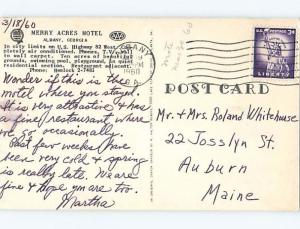 3/18/60
MERRY ACRES MOTEL
ALBANY, GEORGIA
In city limits on U.S. Highway 82 West. Com-
pletely air conditioned. Phones, T.V., wall
to wall carpet. Ten acres of beautiful
grounds, swimming pool, playground, in quiet
residential section. Restaurant adjacent.
Phone: Hemlock 2-7481
Wonder if this is the
motel where you stayed.
It is very attractive & has
a fine restaurant where
we go occasionally.
Past few weeks have
been very cold & spring
is really late. We are
fine & hope you are too.
Martha
ALBANY
PM
1960
GA.
3¢
LIBERTY
POST CARD
Mr. & Mrs. Roland Whitehouse
22 Josslyn St.
Auburn
Maine